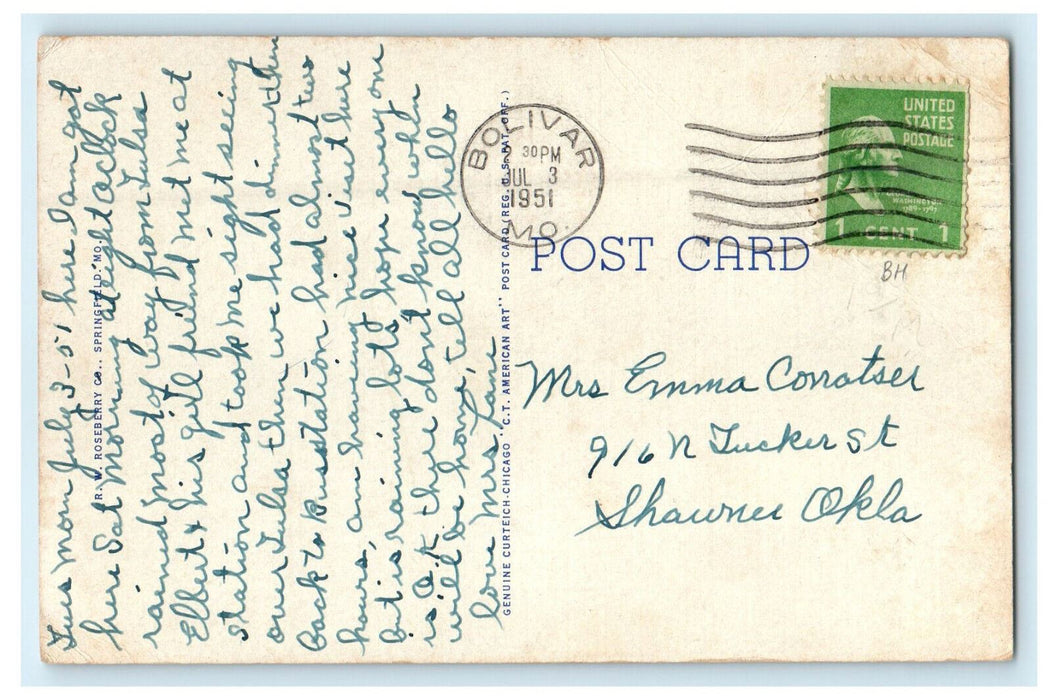 Tues morn July 3-51 here I am got
here Sat morning at eight oclock
rained most of way from Tulsa
Elbert & his girl friend met me at
station and took me sight seeing
over Tulsa then we had dinner then
back to bus station had almost two
hours, am having nice visit here
but is raining lots, hope every one
is O.K. there dont know when
will be home, tell all hello
love Mrs
R. W. ROSEBERRY CO., SPRINGFIELD, MO.
GENUINE CURTEICH-CHICAGO "C.T. AMERICAN ART" POST CARD (REG. U.S. PAT. OFF.)
BOLIVAR
30 PM
JUL 3
1951
MO.
UNITED
STATES
POSTAGE
WASHINGTON
1789-1797
1 CENT 1
BH
POST CARD
Mrs Emma Conatser
916 N Tucker St
Shawnee Okla